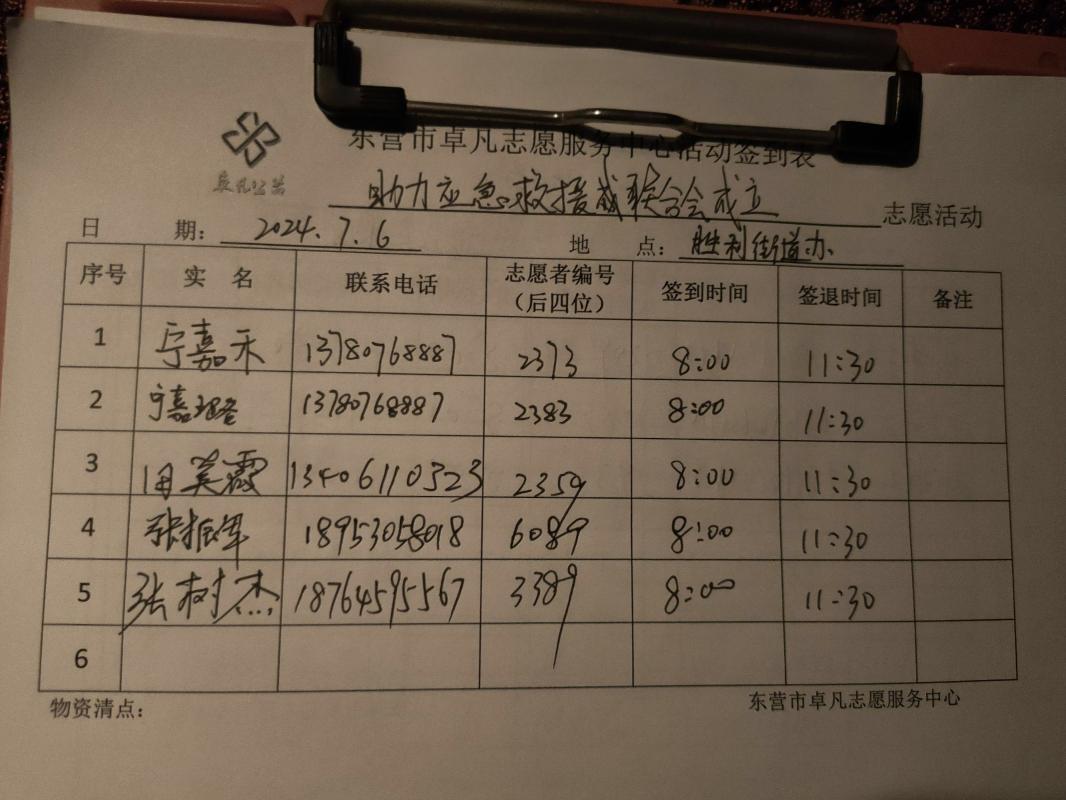 东营市卓凡志愿服务中心活动签到表
卓凡公益
助力应急救援 联合会成立 志愿活动
日 期: 2024.7.6 地 点: 胜利街道办
序号 实 名 联系电话 志愿者编号（后四位） 签到时间 签退时间 备注
1 宁嘉禾 13780768887 2373 8:00 11:30
2 宁嘉璐 13780768887 2383 8:00 11:30
3 田美霞 13406110323 2359 8:00 11:30
4 张振军 18953058018 6089 8:00 11:30
5 张树杰 18764595567 3389 8:00 11:30
6
物资清点: 东营市卓凡志愿服务中心